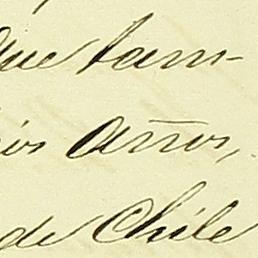 que tam-
ios años,
de Chile